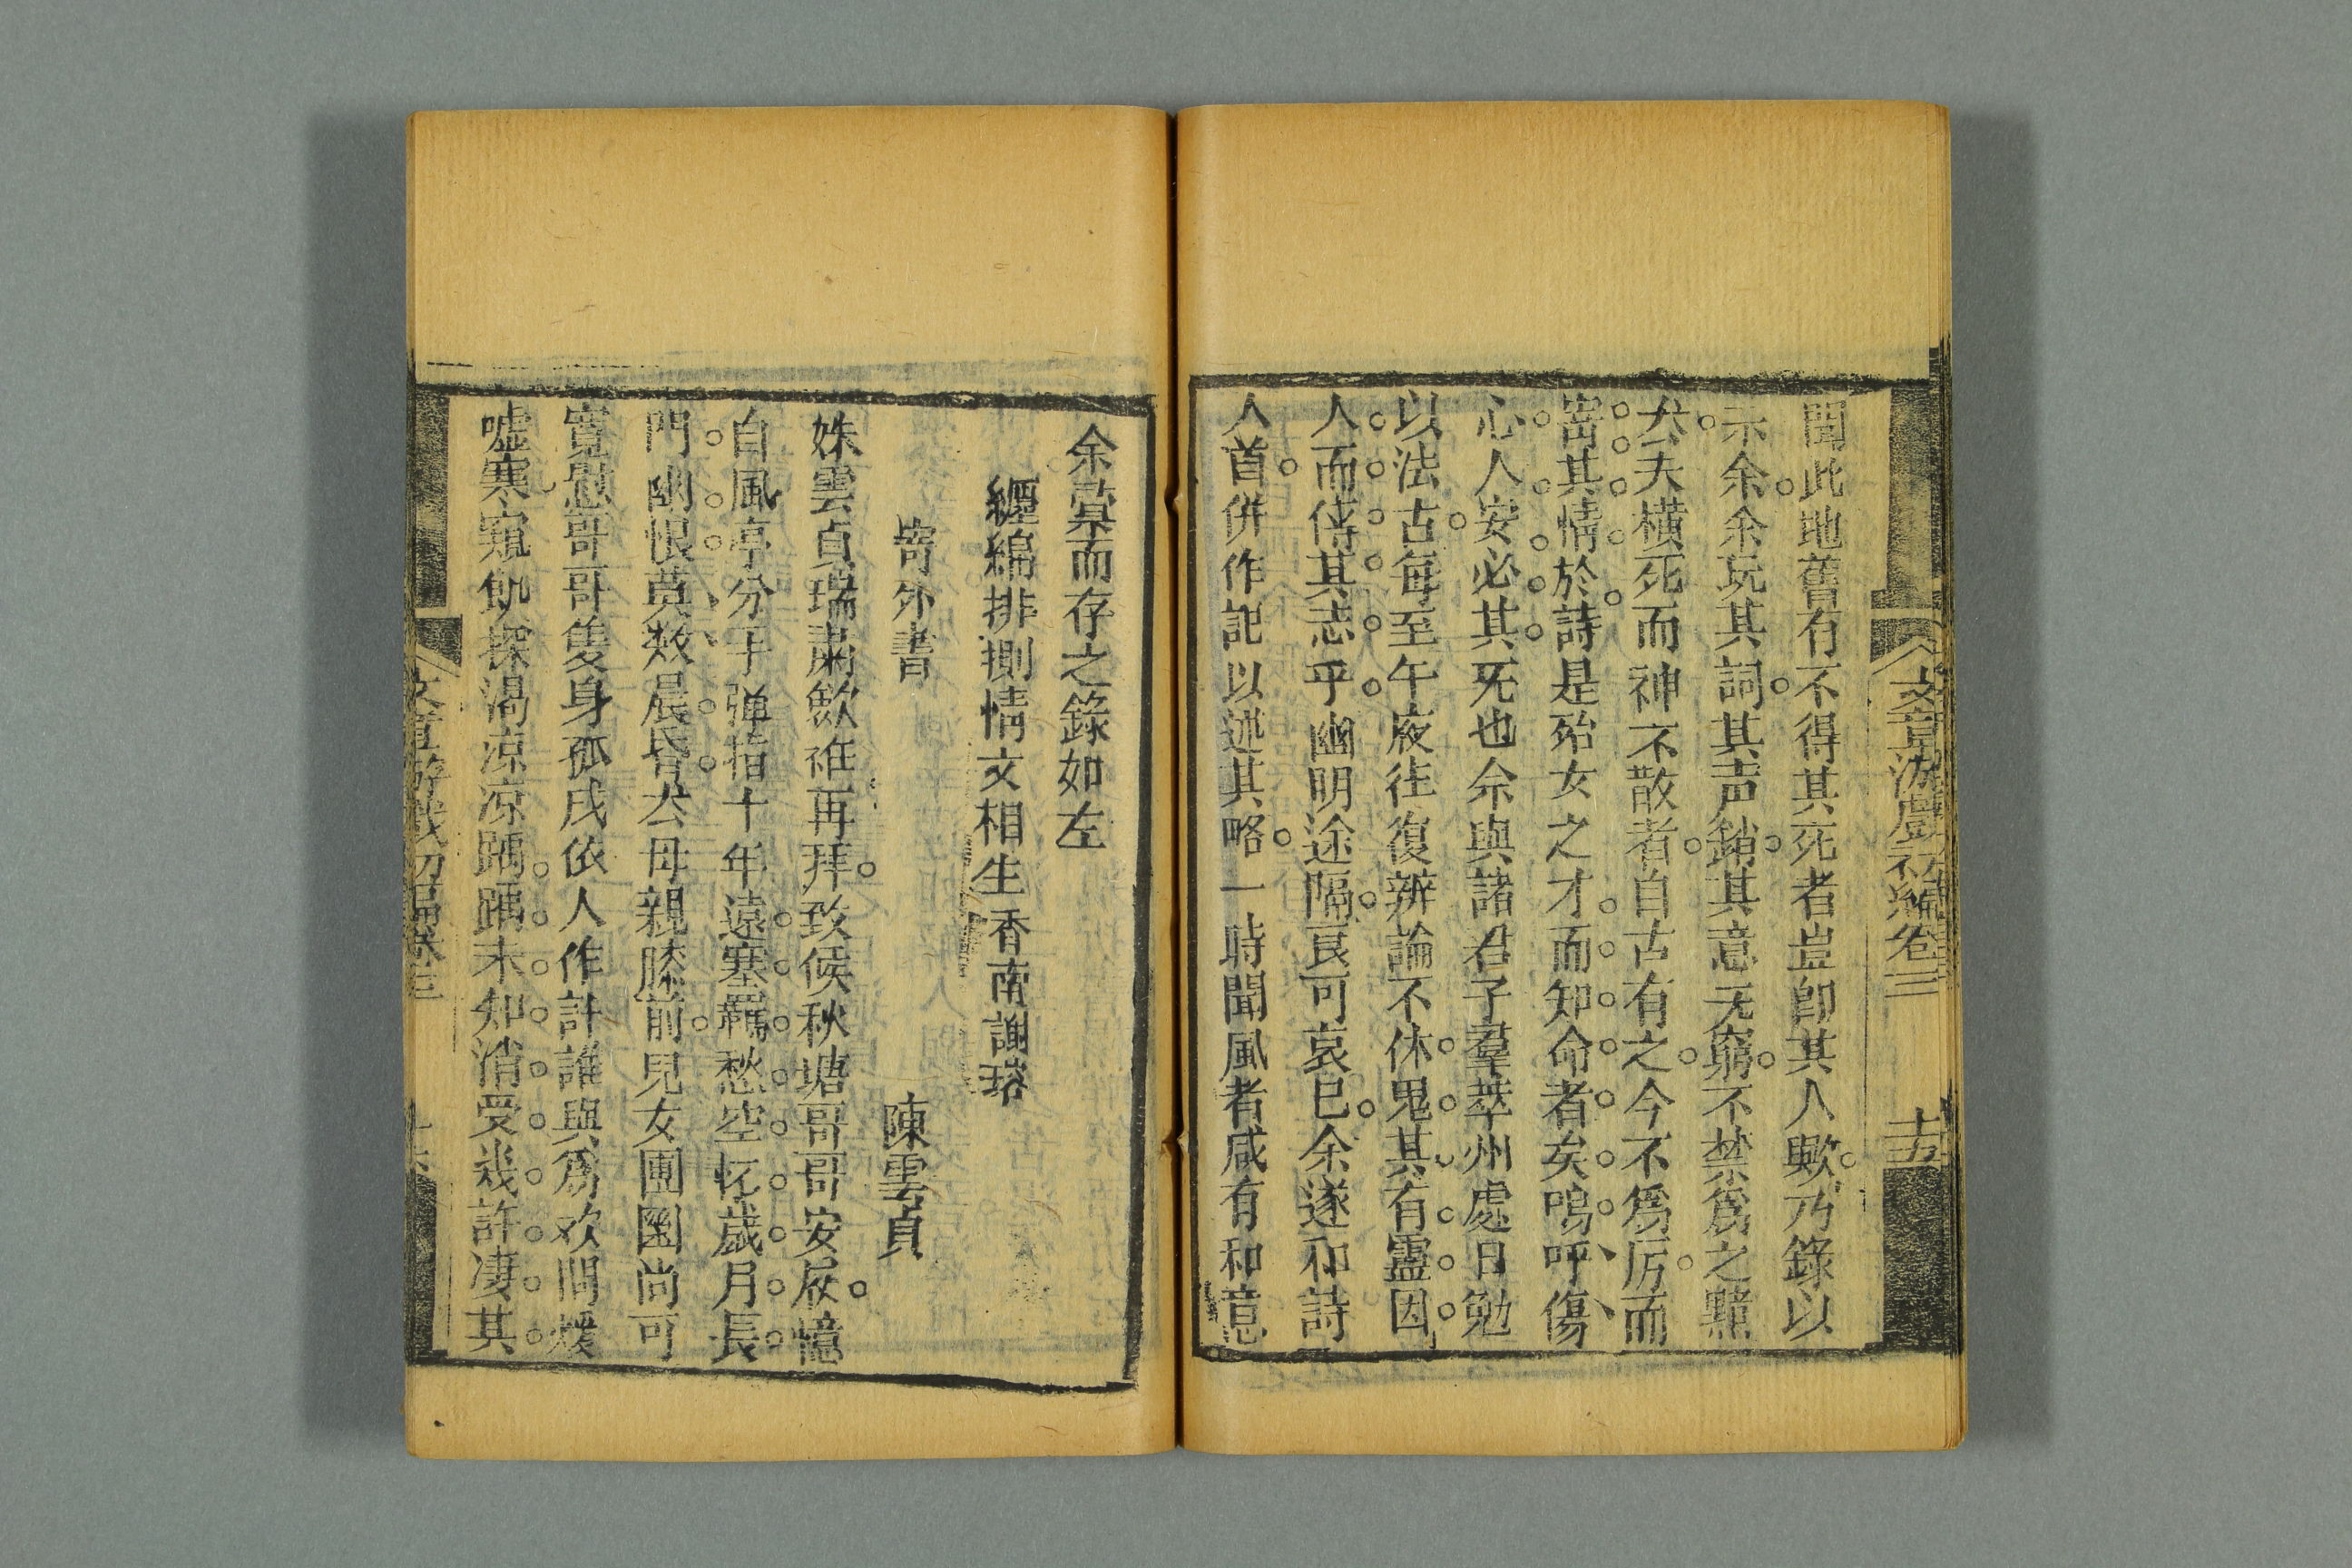 文章游戲初編卷三
十五
聞此地舊有不得其死者豈卽其人歟乃錄以
示余余玩其詞其声銷其意无窮不禁爲之黯
然夫橫死而神不散者自古有之今不爲厉而
寄其情於詩是殆女之才而知命者矣嗚呼傷
心人安必其死也余與諸君子羣萃州處日勉
以法古每至午夜徃復辨論不休鬼其有靈因
人而侍其志乎幽明途隔良可哀已余遂和詩
八首併作記以述其略一時聞風者咸有和意
余藁而存之錄如左
纏綿排惻情文相生香南謝琮
寄外書
陳雲貞
妹雲貞瑞肅歛衽再拜致候秋塘哥哥安履憶
自風亭分手弹指十年遠塞羈愁空忆歲月長
門幽恨莫数晨昏公母親膝前兒女團圞尚可
寛慰哥哥隻身孤戍依人作計誰與爲欢問煖
噓寒窺飢探渴凉凉踽踽未知消受幾許凄其
文章游戲初編卷三
十六